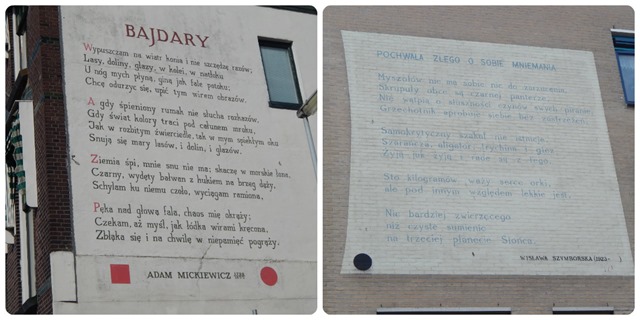 BAJDARY
Wypuszczam na wiatr konia i nie szczędzę razów;
Lasy, doliny, głazy, w kolei, w natłoku
U nóg mych płyną, giną jak fale potoku;
Chcę odurzyć się, upić tym wirem obrazów.
A gdy spieniony rumak nie słucha rozkazów,
Gdy świat kolory traci pod całunem mroku,
Jak w rozbitym źwierciedle, tak w mym spiekłym oku
Snują się mary lasów, i dolin, i głazów.
Ziemia śpi, mnie snu nie ma; skaczę w morskie łona,
Czarny, wydęty bałwan z hukiem na brzeg dąży,
Schylam ku niemu czoło, wyciągam ramiona,
Pęka nad głową fala, chaos mię okrąży;
Czekam, aż myśl, jak łódka wirami kręcona,
Zbłąka się i na chwilę w niepamięć pogrąży.
ADAM MICKIEWICZ
POCHWAŁA ZŁEGO O SOBIE MNIEMANIA
Myszołów nie ma sobie nic do zarzucenia.
Skrupuły obce są czarnej panterze.
Nie wątpią o słuszności czynów swych piranie.
Grzechotnik aprobuje siebie bez zastrzeżeń.
Samokrytyczny szakal nie istnieje.
Szarańcza, aligator, trychina i giez
żyją jak żyją i rade są z tego.
Sto kilogramów waży serce orki,
ale pod innym względem lekkie jest.
Nic bardziej zwierzęcego
niż czyste sumienie
na trzeciej planecie Słońca.
WISŁAWA SZYMBORSKA (1923-